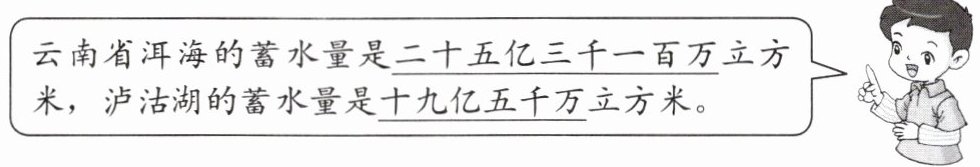 云南省洱海的蓄水量是二十五亿三千一百万立方
米，泸沽湖的蓄水量是十九亿五千万立方米。